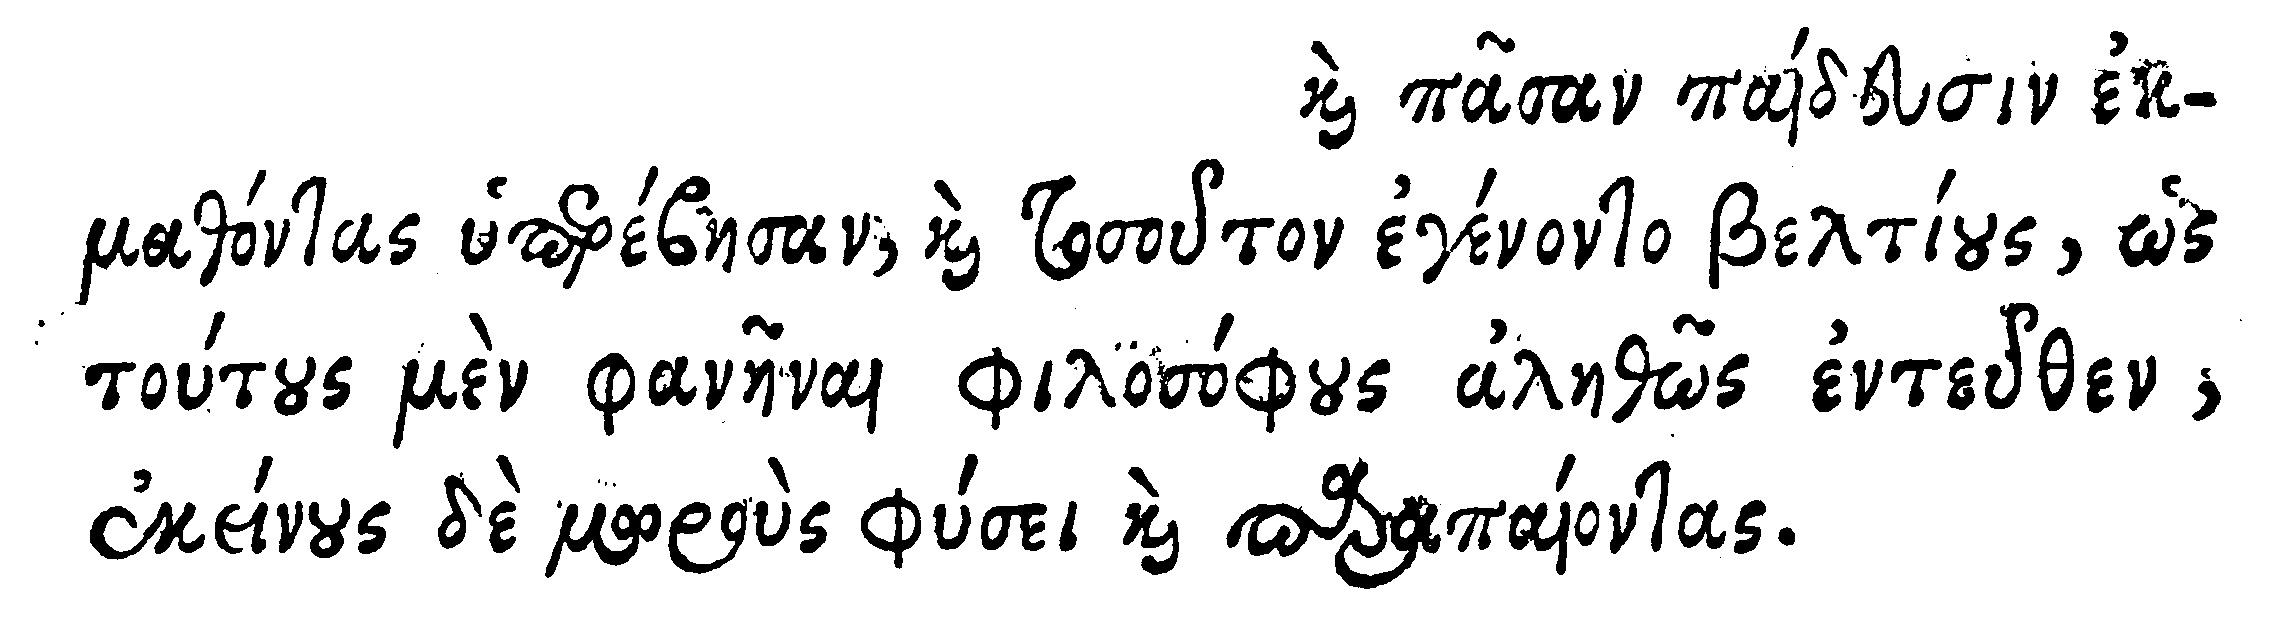 καὶ πᾶσαν παίδευσιν ἐκ-
μαθόντας ὑπερέβησαν, καὶ τοσοῦτον ἐγένοντο βελτίους, ὡς
τούτους μὲν φανῆναι φιλοσόφους ἀληθῶς ἐντεῦθεν,
ἐκείνους δὲ μωροὺς φύσει καὶ παραπαίοντας.